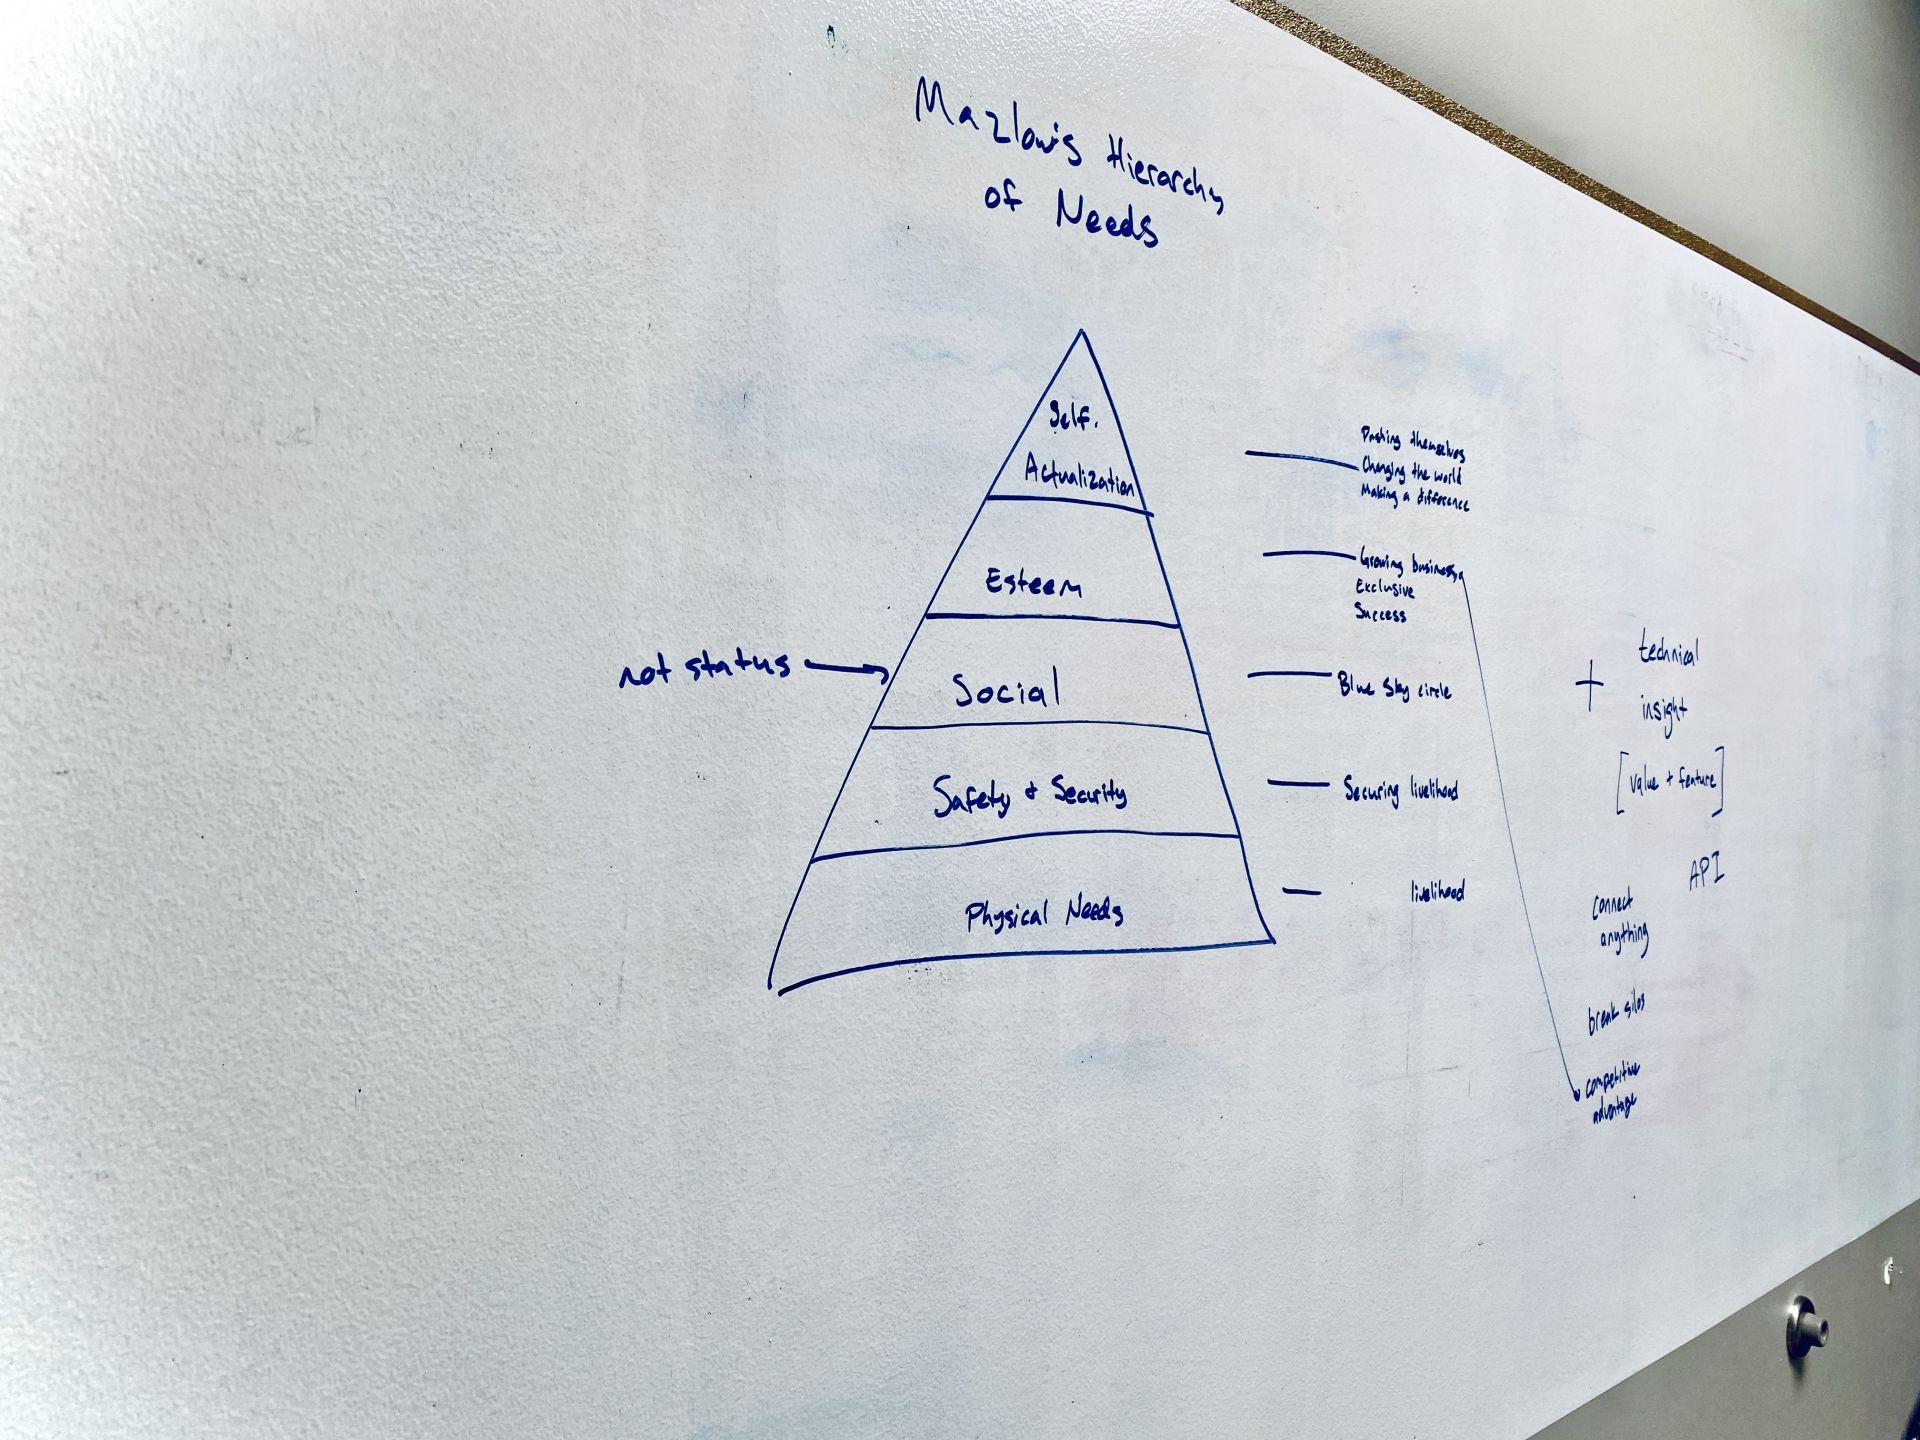 Mazlow's Hierarchy
of Needs
Self.
Actualization
Pushing themselves
Changing the world
Making a difference
Esteem
Growing business
Exclusive
Success
not status
Social
Blue Sky circle
Safety + Security
Securing livelihood
Physical Needs
livelihood
+ technical
insight
[value + feature]
API
connect
anything
break silos
competitive
advantage